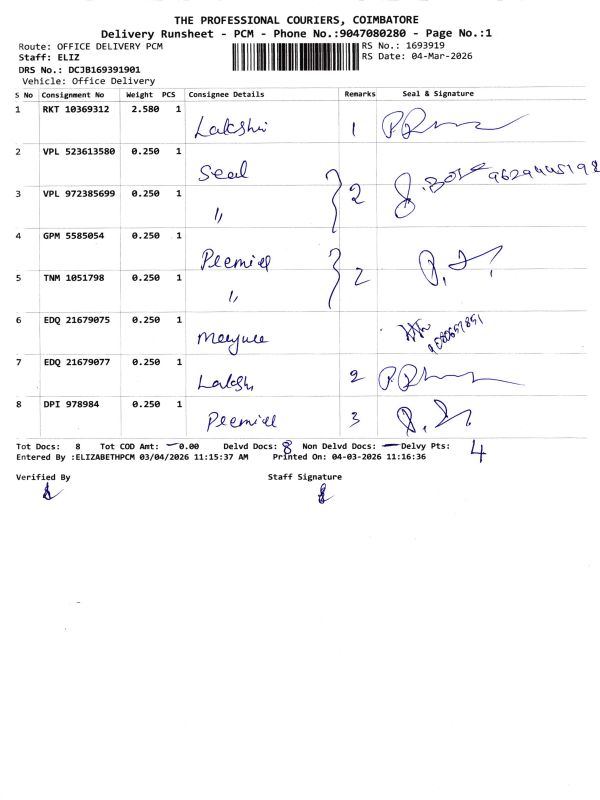 THE PROFESSIONAL COURIERS, COIMBATORE
Delivery Runsheet - PCM - Phone No.:9047080280 - Page No.:1
Route: OFFICE DELIVERY PCM RS No.: 1693919
Staff: ELIZ RS Date: 04-Mar-2026
DRS No.: DCJB169391901
Vehicle: Office Delivery
S No Consignment No Weight PCS Consignee Details Remarks Seal & Signature
1 RKT 10369312 2.580 1 1
2 VPL 523613580 0.250 1 Seal 2
3 VPL 972385699 0.250 1 "
4 GPM 5585054 0.250 1 2
5 TNM 1051798 0.250 1 "
6 EDQ 21679075 0.250 1
7 EDQ 21679077 0.250 1 2
8 DPI 978984 0.250 1 3
Tot Docs: 8 Tot COD Amt: 0.00 Delvd Docs: 8 Non Delvd Docs: — Delvy Pts: 4
Entered By :ELIZABETHPCM 03/04/2026 11:15:37 AM Printed On: 04-03-2026 11:16:36
Verified By Staff Signature